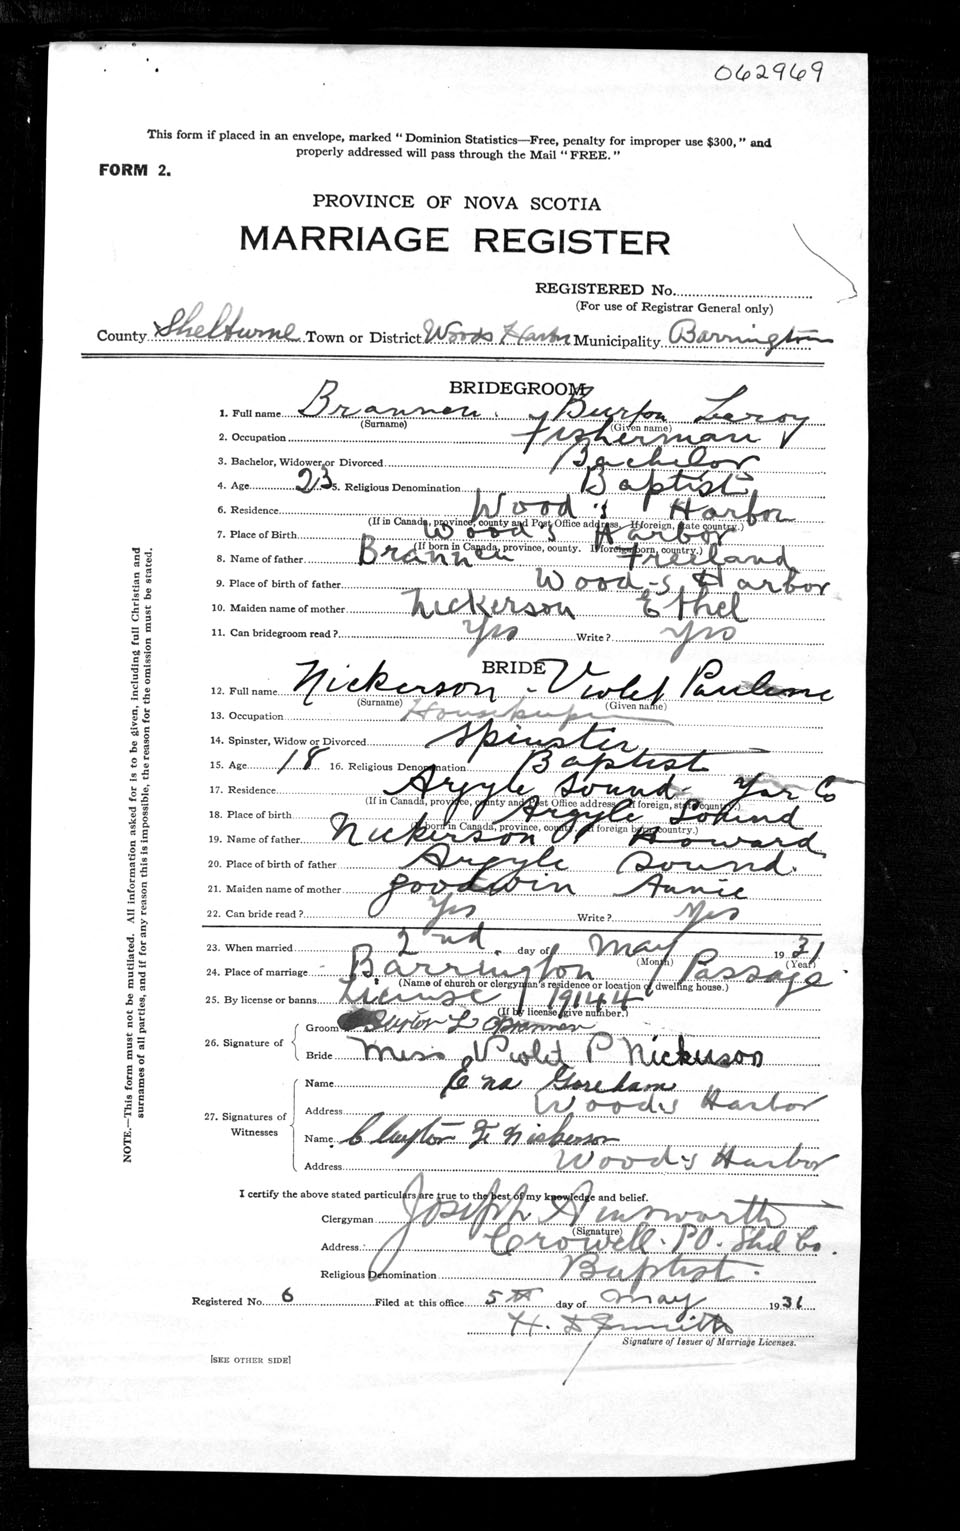 062969
This form if placed in an envelope, marked “Dominion Statistics—Free, penalty for improper use $300,” and
properly addressed will pass through the Mail “FREE.”
FORM 2.
PROVINCE OF NOVA SCOTIA
MARRIAGE REGISTER
REGISTERED No.
(For use of Registrar General only)
County Shelburne Town or District Woods Harbor Municipality Barrington
BRIDEGROOM
1. Full name Brannen, Burton Leroy
(Surname) (Given name)
2. Occupation fisherman
3. Bachelor, Widower or Divorced Bachelor
4. Age 23 5. Religious Denomination Baptist
6. Residence Wood's Harbor
(If in Canada, province, county and Post Office address. If foreign, state country.)
7. Place of Birth Wood's Harbor
(If born in Canada, province, county. If foreign born, country.)
8. Name of father Brannen Freeland
9. Place of birth of father Wood-s Harbor
10. Maiden name of mother Nickerson Ethel
11. Can bridegroom read? Yes Write? Yes
BRIDE
12. Full name Nickerson - Violet Paulene
(Surname) (Given name)
13. Occupation Housekeeper
14. Spinster, Widow or Divorced Spinster
15. Age 18 16. Religious Denomination Baptist
17. Residence Argyle Sound Yar Co
(If in Canada, province, county and Post Office address. If foreign, state country.)
18. Place of birth Argyle Sound
(If born in Canada, province, county. If foreign born, country.)
19. Name of father Nickerson Howard
20. Place of birth of father Argyle Sound.
21. Maiden name of mother goodwin Annie
22. Can bride read? Yes Write? Yes
23. When married 2nd. day of May 1931
(Month) (Year)
24. Place of marriage Barrington Passage
(Name of church or clergyman's residence or location of dwelling house.)
25. By license or banns License 19144
(If by license, give number.)
26. Signature of
Groom Burton L Brannen
Bride Miss Violet P Nickerson
27. Signatures of Witnesses
Name Ena Goreham
Address Woods Harbor
Name Clayton F Nickerson
Address Wood-s Harbor
I certify the above stated particulars are true to the best of my knowledge and belief.
Clergyman Joseph Ainsworth
(Signature)
Address Crowell. P.O. Shel Co.
Religious Denomination Baptist.
Registered No. 6 Filed at this office 5th day of May 1931
H. Smith
Signature of Issuer of Marriage Licenses.
[SEE OTHER SIDE]
NOTE.—This form must not be mutilated. All information asked for is to be given, including full Christian and
surnames of all parties, and if for any reason this is impossible, the reason for the omission must be stated.